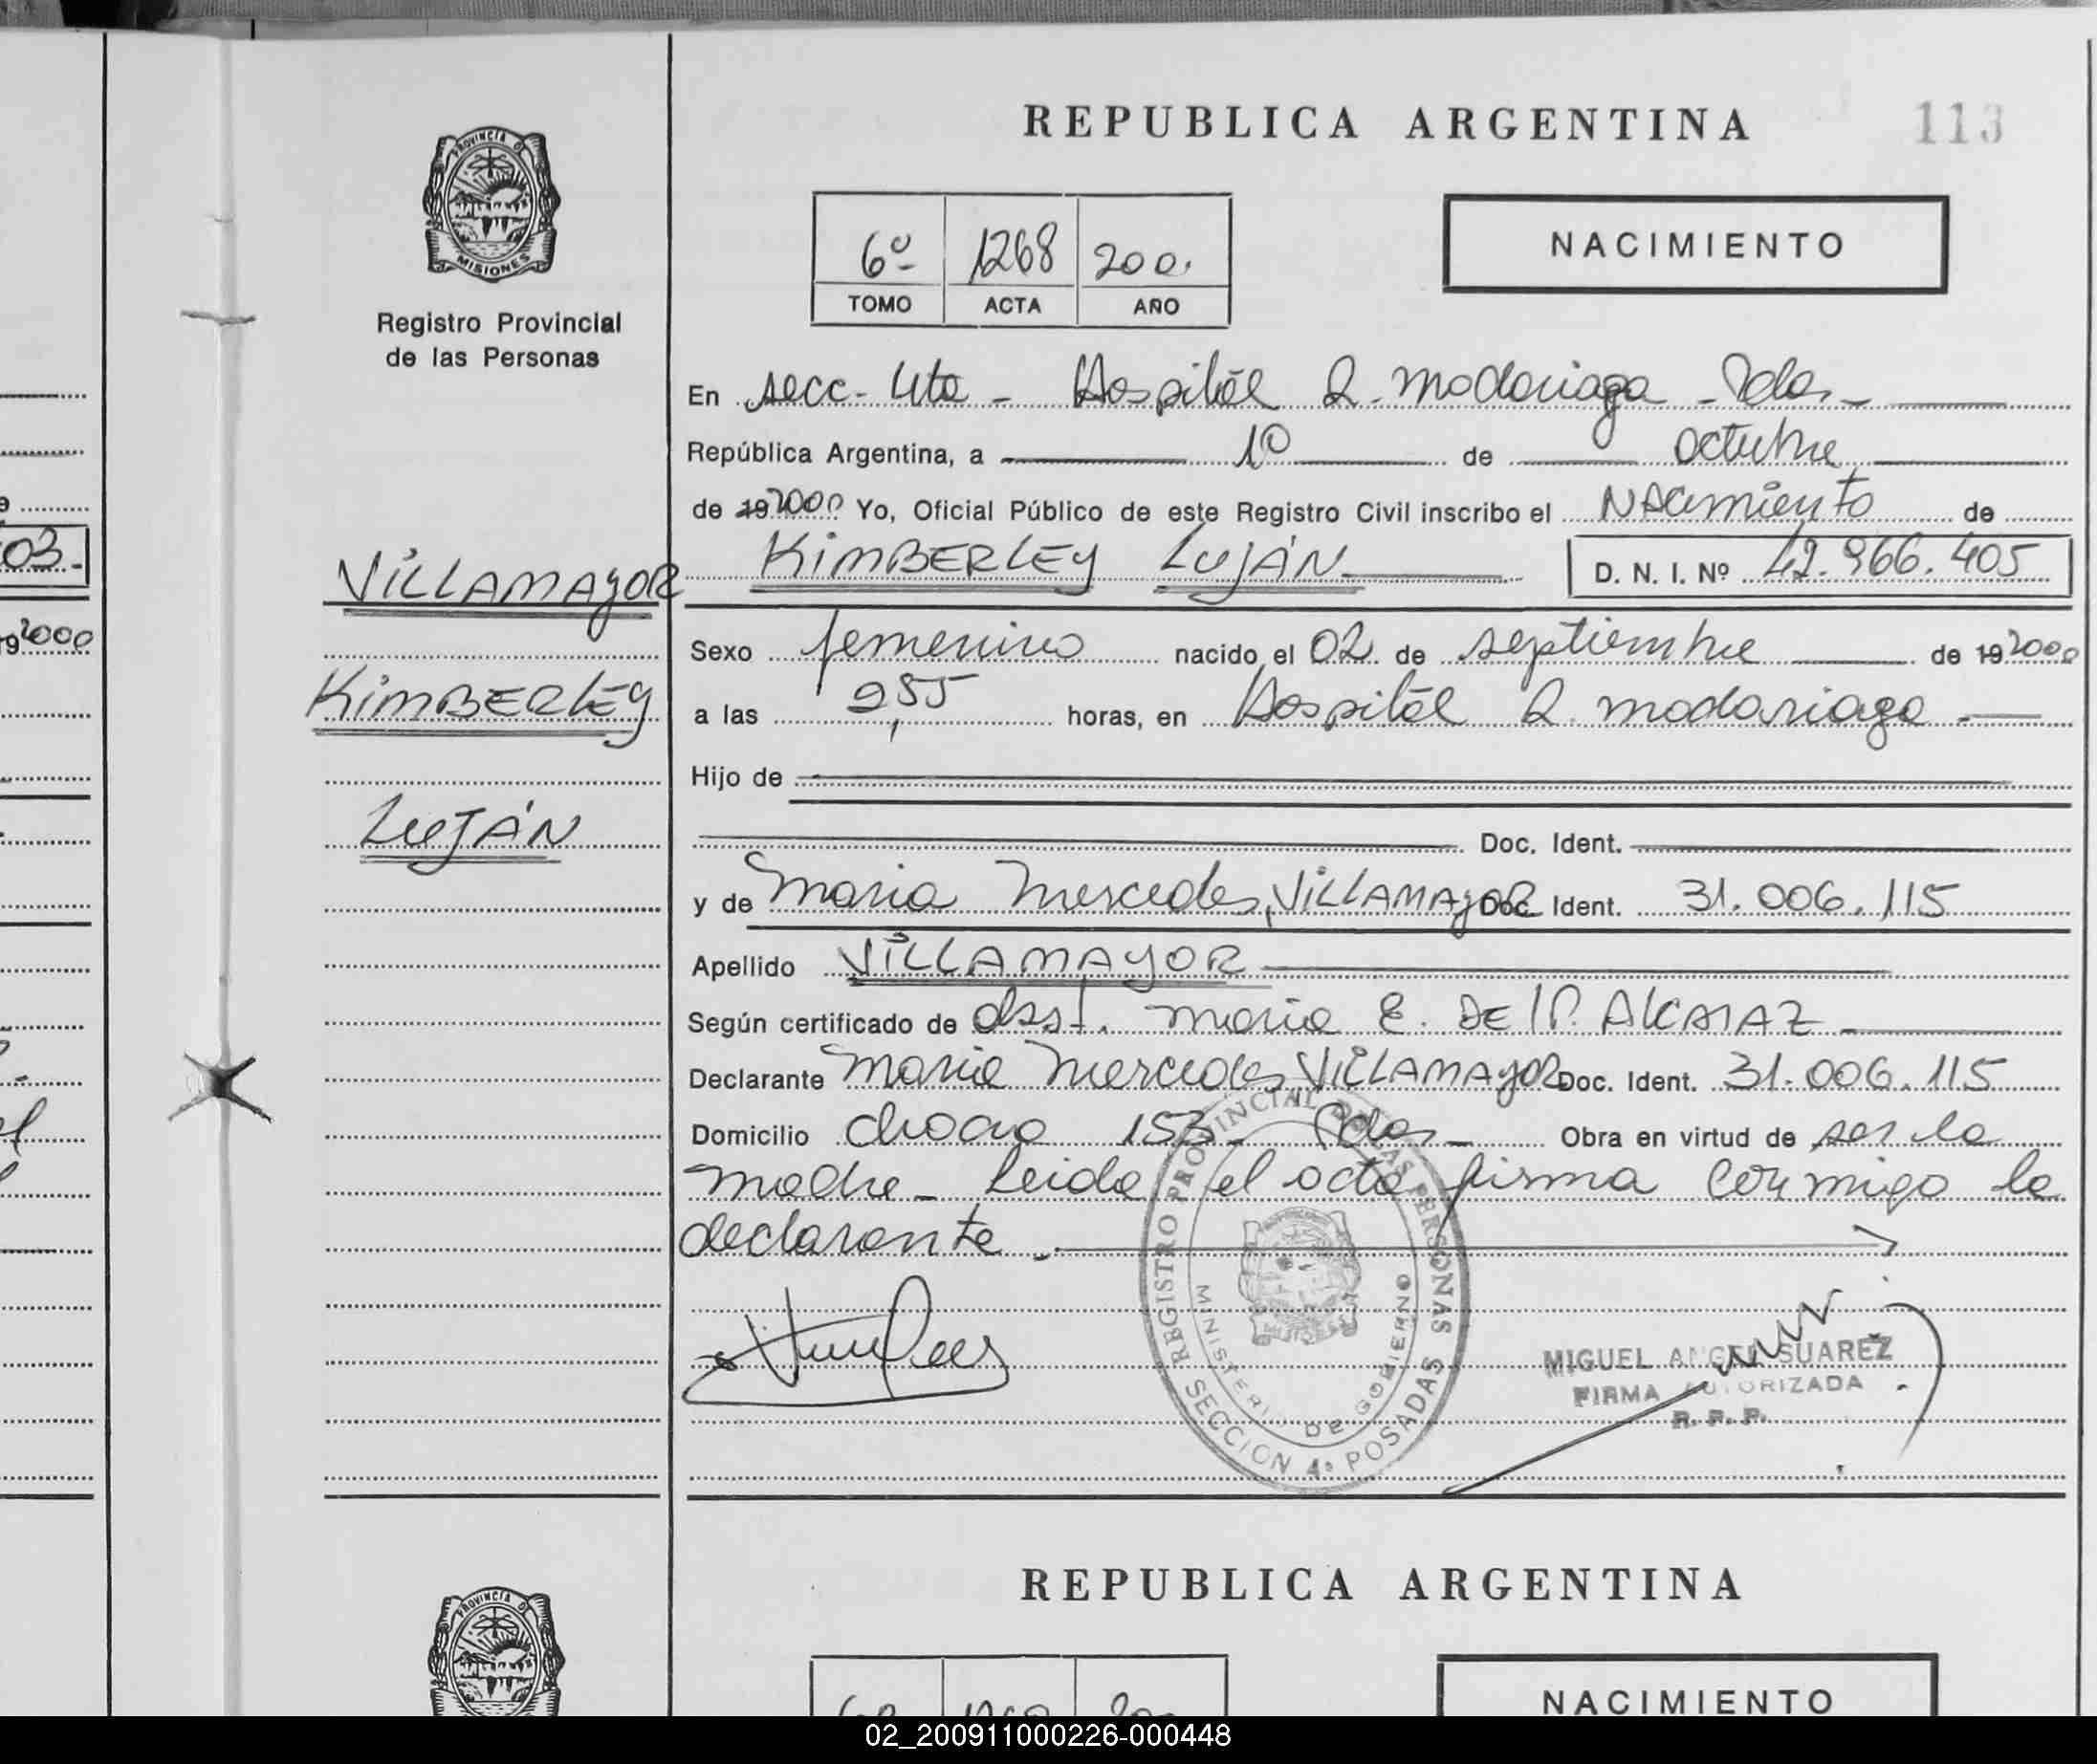 REPUBLICA ARGENTINA
113
PROVINCIA DE
MISIONES
Registro Provincial
de las Personas
6º 1268 200.
TOMO ACTA AÑO
NACIMIENTO
En secc- 4ta - Hospital R. Madariaga - Pdas. -
República Argentina, a 10 de octubre
de 19 2000 Yo, Oficial Público de este Registro Civil inscribo el Nacimiento de
03.
VILLAMAYOR
KIMBERLEY LUJÁN D. N. I. Nº 42.966.405
19 2000
Sexo femenino nacido el 02 de septiembre de 19 2000
KIMBERLEY
a las 955 horas, en Hospital R. Madariaga -
Hijo de
LUJÁN
Doc. Ident.
y de Maria Mercedes, VILLAMAYOR Doc. Ident. 31.006.115
Apellido VILLAMAYOR
Según certificado de obst. Maria E. DE ALCARAZ -
Declarante Maria Mercedes VILLAMAYOR Doc. Ident. 31.006.115
Domicilio chaco 153 - Pdas - Obra en virtud de ser la
madre - Leida el acta firma conmigo la
declarante.
REGISTRO PROVINCIAL DE LAS PERSONAS
MINISTERIO DE GOBIERNO
SECCION 4ª POSADAS
MIGUEL ANGEL SUAREZ
FIRMA AUTORIZADA
R. P. P.
REPUBLICA ARGENTINA
PROVINCIA DE
NACIMIENTO
02_200911000226-000448